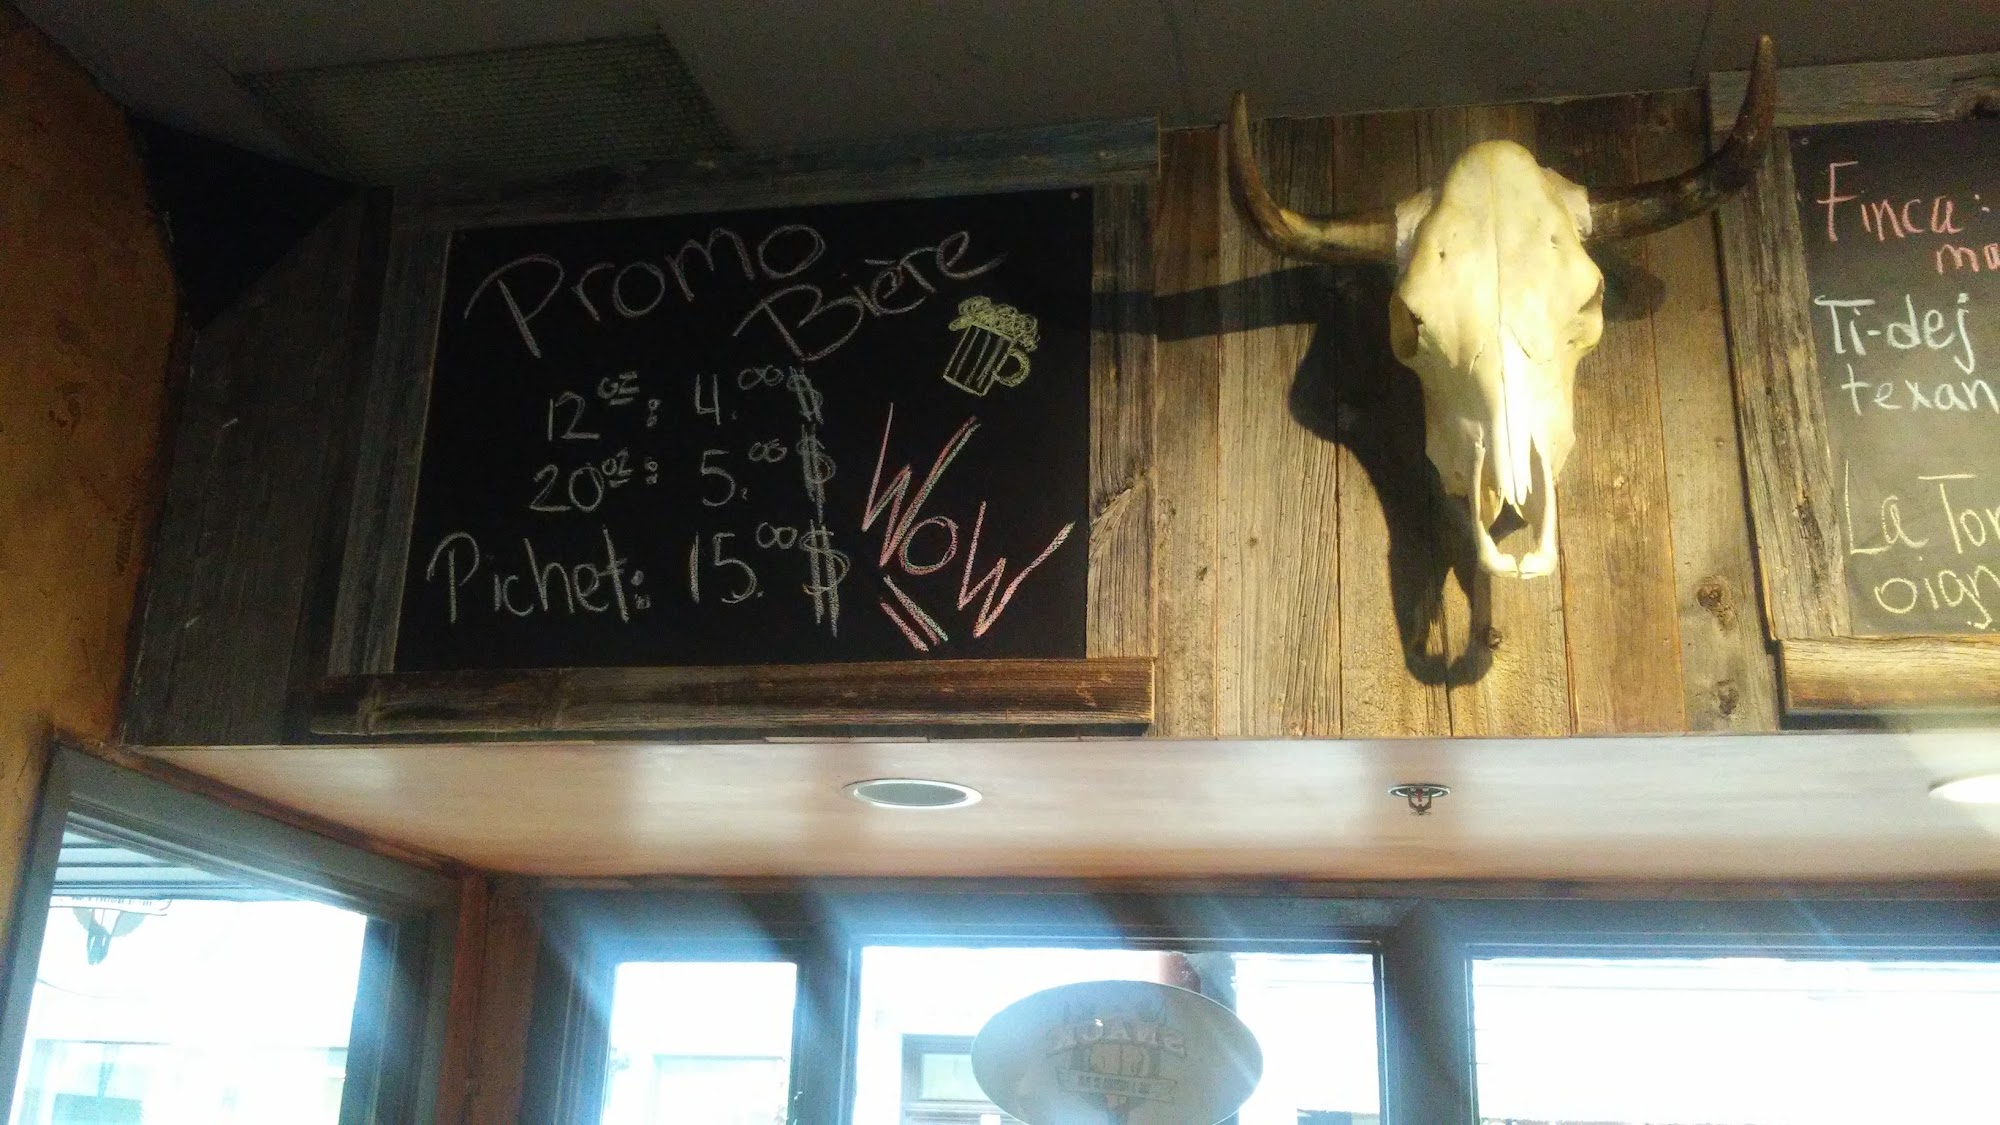 Promo
Bière
12oz: 4.00$
20oz: 5.00$
Pichet: 15.00$
WOW
!!
Finca:
Ti-dej
texan
La Tor
oign
SNACK